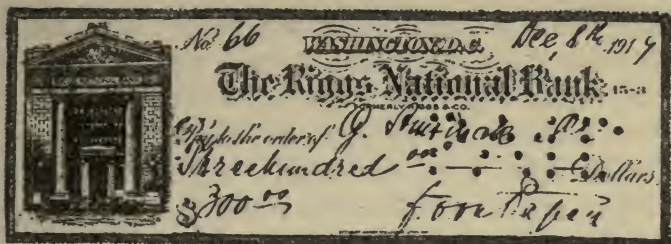 No. 66 WASHINGTON, D.C. Dec, 8th, 1917
The Riggs National Bank 15-3
FORMERLY RIGGS & CO.
Pay to the order of
Threehundred 00 Dollars
$300.00